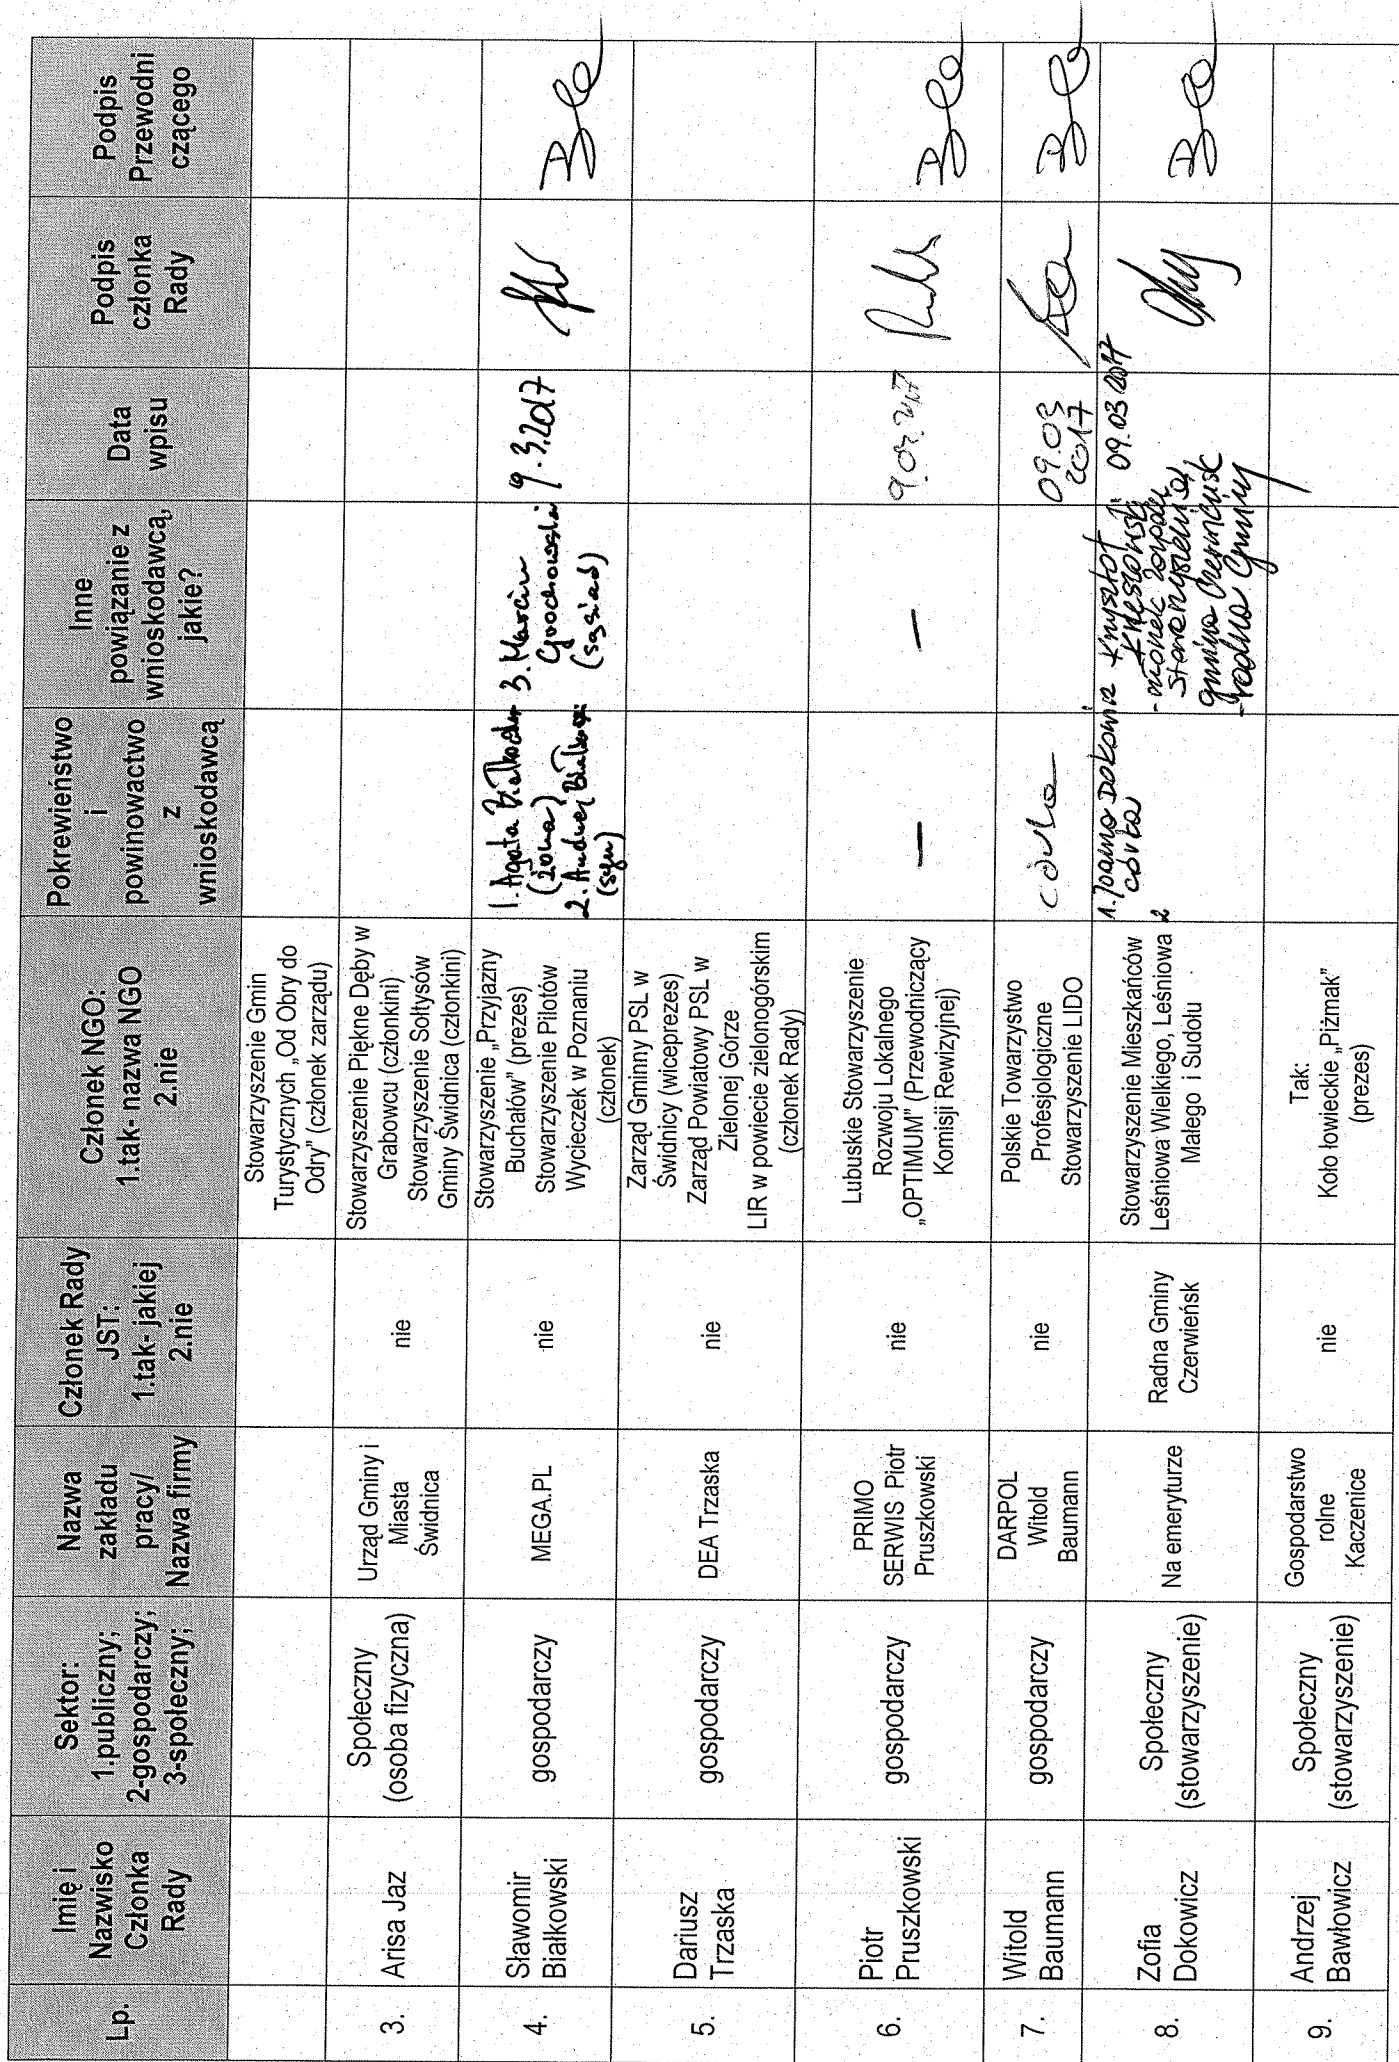 Lp.
Imię i
Nazwisko
Członka
Rady
Sektor:
1.publiczny;
2-gospodarczy;
3-społeczny;
Nazwa
zakładu
pracy/
Nazwa firmy
Członek Rady
JST:
1.tak- jakiej
2.nie
Członek NGO:
1.tak- nazwa NGO
2.nie
Pokrewieństwo
i
powinowactwo
z
wnioskodawcą
Inne
powiązanie z
wnioskodawcą,
jakie?
Data
wpisu
Podpis
członka
Rady
Podpis
Przewodni
czącego
Stowarzyszenie Gmin
Turystycznych „Od Obry do
Odry" (członek zarządu)
3.
Arisa Jaz
Społeczny
(osoba fizyczna)
Urząd Gminy i
Miasta
Świdnica
nie
Stowarzyszenie Piękne Dęby w
Grabowcu (członkini)
Stowarzyszenie Sołtysów
Gminy Świdnica (członkini)
4.
Sławomir
Białkowski
gospodarczy
MEGA.PL
nie
Stowarzyszenie „Przyjazny
Buchałów" (prezes)
Stowarzyszenie Pilotów
Wycieczek w Poznaniu
(członek)
1. Agata
(żona)
2. Andrzej
(syn)
3. Marcin
Grochowski
(sąsiad)
9.3.2017
5.
Dariusz
Trzaska
gospodarczy
DEA Trzaska
nie
Zarząd Gminny PSL w
Świdnicy (wiceprezes)
Zarząd Powiatowy PSL w
Zielonej Górze
LIR w powiecie zielonogórskim
(członek Rady)
6.
Piotr
Pruszkowski
gospodarczy
PRIMO
SERWIS Piotr
Pruszkowski
nie
Lubuskie Stowarzyszenie
Rozwoju Lokalnego
„OPTIMUM" (Przewodniczący
Komisji Rewizyjnej)
—
—
7.
Witold
Baumann
gospodarczy
DARPOL
Witold
Baumann
nie
Polskie Towarzystwo
Profesjologiczne
Stowarzyszenie LIDO
córka
09.03
2017
8.
Zofia
Dokowicz
Społeczny
(stowarzyszenie)
Na emeryturze
Radna Gminy
Czerwieńsk
Stowarzyszenie Mieszkańców
Leśniowa Wielkiego, Leśniowa
Małego i Sudołu
1. Joanna Dokowicz
córka
2
Krzysztof
Stowarzyszenia,
gmina Czerwieńsk
- radna Gminy
09.03 2017
9.
Andrzej
Bawłowicz
Społeczny
(stowarzyszenie)
Gospodarstwo
rolne
Kaczenice
nie
Tak:
Koło łowieckie „Piżmak"
(prezes)